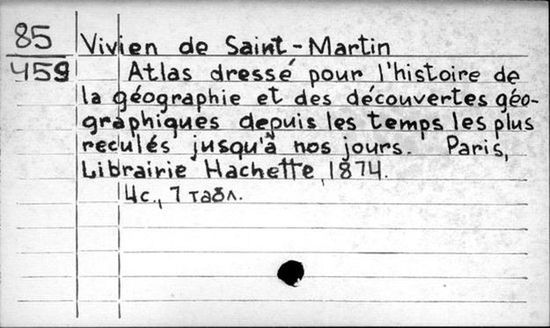 85 Vivien de Saint-Martin
459 Atlas dressé pour l'histoire de
la géographie et des découvertes géo-
graphiques depuis les temps les plus
reculés jusqu'à nos jours. Paris,
Librairie Hachette, 1874.
4с., 7 табл.